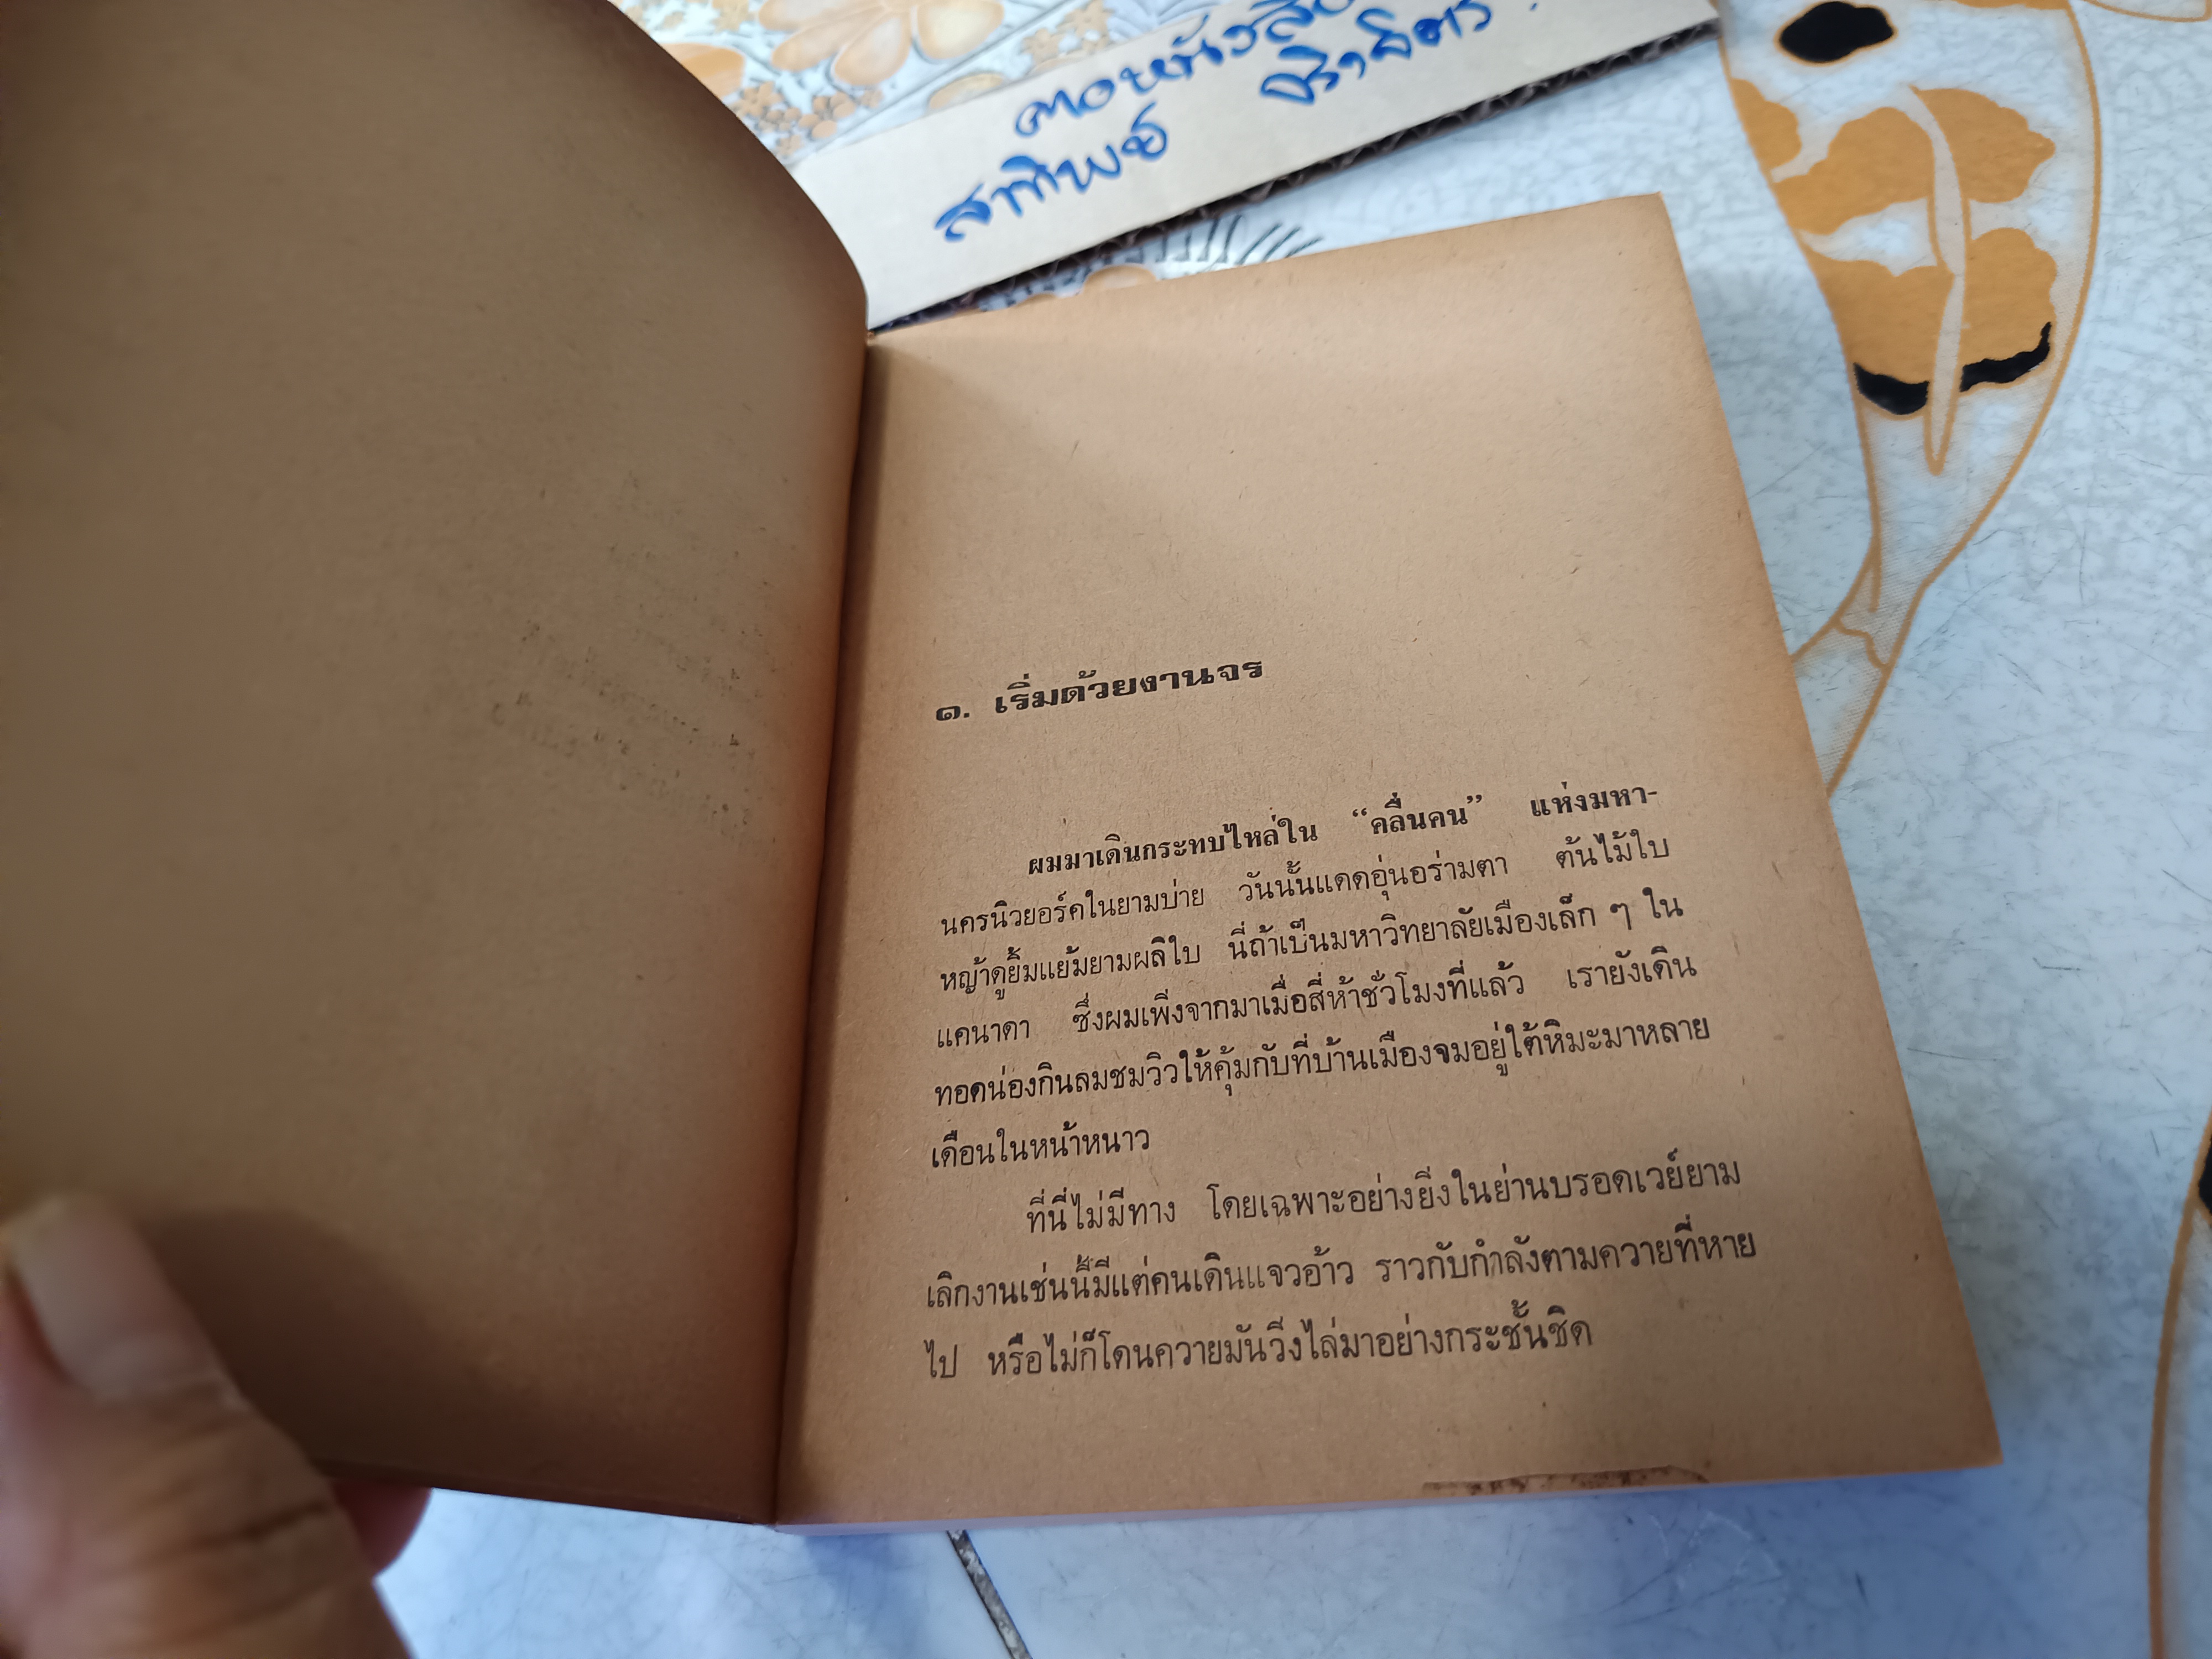 คอหนังสือ
สาทิพย์ ศิราจิตร
๑. เริ่มด้วยงานจร
ผมมาเดินกระทบไหล่ใน “คลื่นคน” แห่งมหา-
นครนิวยอร์คในยามบ่าย วันนั้นแดดอุ่นอร่ามตา ต้นไม้ใบ
หญ้าดูยิ้มแย้มยามผลิใบ นี่ถ้าเป็นมหาวิทยาลัยเมืองเล็ก ๆ ใน
แคนาดา ซึ่งผมเพิ่งจากมาเมื่อสี่ห้าชั่วโมงที่แล้ว เรายังเดิน
ทอดน่องกินลมชมวิวให้คุ้มกับที่บ้านเมืองจมอยู่ใต้หิมะมาหลาย
เดือนในหน้าหนาว
ที่นี่ไม่มีทาง โดยเฉพาะอย่างยิ่งในย่านบรอดเวย์ยาม
เลิกงานเช่นนี้มีแต่คนเดินแจวอ้าว ราวกับกำลังตามควายที่หาย
ไป หรือไม่ก็โดนควายมันวิ่งไล่มาอย่างกระชั้นชิด